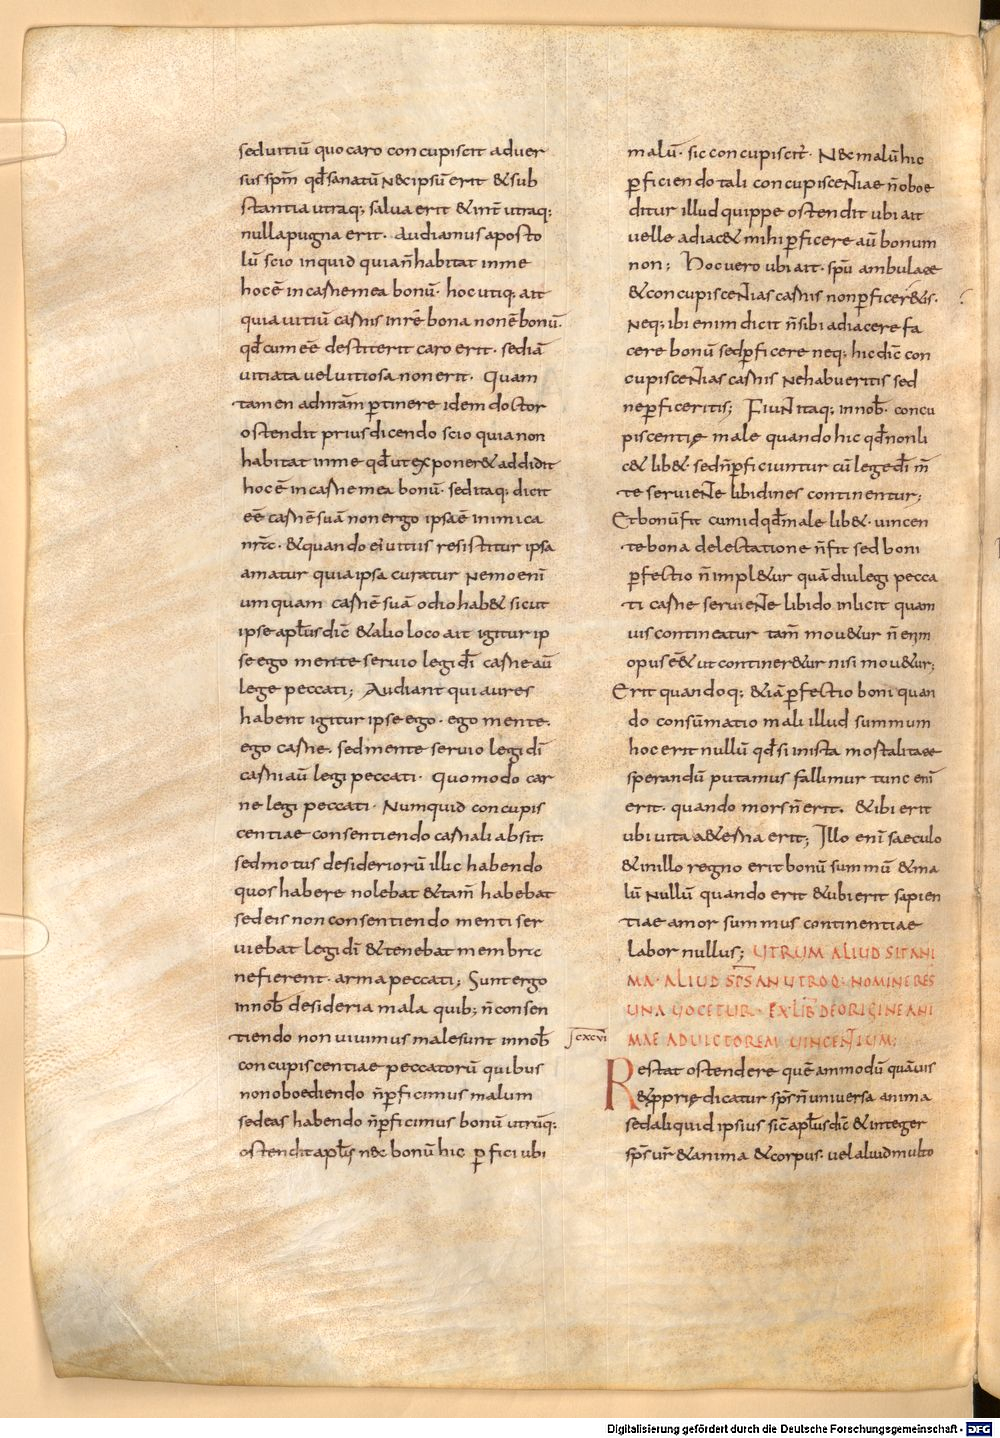 sed uitiū quo caro concupiscit aduer
sus sp̄m qd̄ sanatū nec ipsū erit & sub
stantia utraq; salua erit & int̄ utraq;
nulla pugna erit. Audiamus aposto
lū scio inquid quia n̄ habitat in me
hoc ē in carne mea bonū. hoc utiq; ait
quia uitiū carnis in rē bona non ē bonū.
qd̄ cum eē destiterit caro erit. sed iā
uitiata uel uitiosa non erit. Quam
tamen ad nr̄am ptinere idem doctor
ostendit prius dicendo scio quia non
habitat in me qd̄ ut exponer& addidit
hoc ē in carne mea bonū. sed itaq; dicit
eē carnē suā non ergo ipsa ē inimica
nr̄a. & quando ei uitiis resistitur ipsa
amatur quia ipsa curatur Nemo enī
umquam carnē suā odio hab& sicut
ipse apl̄us dic̄ & alio loco ait igitur ip
se ego mente seruio legi dī carne aū
lege peccati; Audiant qui aures
habent igitur ipse ego. ego mente.
ego carne. sed mente seruio legi dī
carni aū legi peccati. Quomodo car
ne legi peccati. Numquid concupis
centiae consentiendo carnali absit.
sed motus desideriorū illic habendo
quos habere nolebat & tam̄ habebat
sed eis non consentiendo menti ser
uiebat legi dī & tenebat membra
ne fierent. arma peccati; Sunt ergo
in nob̄ desideria mala quib; n̄ consen
tiendo non uiuimus male sunt in nob̄
concupiscentiae peccatorū quibus
non oboediendo n̄ pficimus malum
sed eas habendo n̄ pficimus bonū utrūq;
ostendit apl̄s nec bonū hic pfici ubi
malū. sic concupiscit̄. Nec malū hic
pfici en do tali concupiscentiae n̄ oboe
ditur illud quippe ostendit ubi ait
uelle adiac& mihi pficere aū bonum
non; Hoc uero ubi ait. spū ambulate
& concupiscentias carnis non pficeritis.
Neq; ibi enim dicit n̄ sibi adiacere fa
cere bonū sed pficere neq; hic dic̄ con
cupiscentias carnis ne habueritis sed
ne pficeritis; Fiunt itaq; in nob̄. concu
piscentię male quando hic qd̄ non li
c& lib&. sed n̄ pficiuntur cū lege dī m̄
te seruiente libidines continentur;
Et bonū fit cum id qd̄ male lib&. uincen
te bona delectatione n̄ fit sed boni
pfectio n̄ impl&ur quā diu legi pecca
ti carne seruiente libido inlicit quam
uis contineatur tam̄ mou&ur n̄ enim
opus eē& ut continer&ur nisi mou&ur;
Erit quandoq; & iā pfectio boni quan
do consūmatio mali illud summum
hoc erit nullū qd̄ si in ista mortalitate
sperandū putamus fallimur tunc enī
erit. quando mors n̄ erit. & ibi erit
ubi uita a&erna erit; Illo enī saeculo
& in illo regno erit bonū summū & ma
lū Nullū quando erit & ubi erit sapien
tiae amor summus continentiae
labor nullus; UTRUM ALIUD SIT ANI
MA. ALIUD SP̄S AN UTROQ. NOMINE RES
UNA UOCETUR. EX LIB̄ DE ORIGINE ANI
cxcvi MAE AD UICTOREM UINCENTIUM;
Restat ostendere quē ammodū quāuis
& pprię dicatur sp̄s n̄ uniuersa anima
sed aliquid ipsius sic̄ apl̄us dic̄ & integer
sp̄s ur̄ & anima & corpus. uel aliud multo
Digitalisierung gefördert durch die Deutsche Forschungsgemeinschaft - DFG